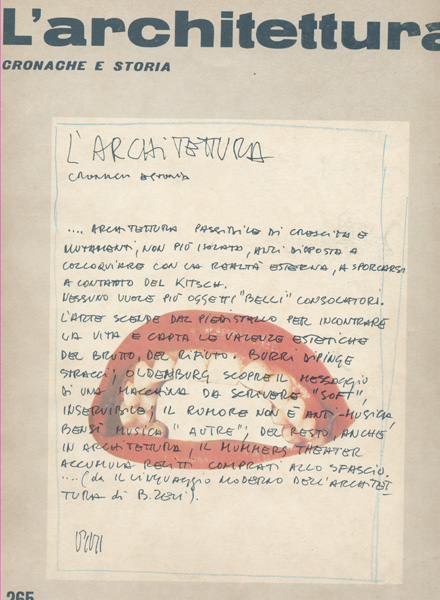 L'architettura
CRONACHE E STORIA
L'ARCHITETTURA
CRONACHE E STORIA
.... ARCHITETTURA PASSIBILE DI CRESCITA E
MUTAMENTI, NON PIÙ ISOLATO, ANZI DISPOSTA A
COLLOQUIARE CON LA REALTÀ ESTERNA, A SPORCARSI
A CONTATTO DEL KITSCH.
NESSUNO VUOLE PIÙ OGGETTI "BELLI" CONSOLATORI.
L'ARTE SCENDE DAL PIEDISTALLO PER INCONTRARE
LA VITA E CAPTA LE VALENZE ESTETICHE
DEL BRUTTO, DEL RIFIUTO. BURRI DIPINGE
STRACCI, OLDEMBURG SCOPRE IL MESSAGGIO
DI UNA MACCHINA DA SCRIVERE "SOFT",
INSERVIBILE, IL RUMORE NON È ANTI-MUSICA
BENSÌ MUSICA "AUTRE"; DEL RESTO, ANCHE
IN ARCHITETTURA, IL MUMMERS THEATER
ACCUMULA RELITTI COMPRATI ALLO SFASCIO.
.... (da IL LINGUAGGIO MODERNO DELL'ARCHITET-
TURA di B. ZEVI).
265